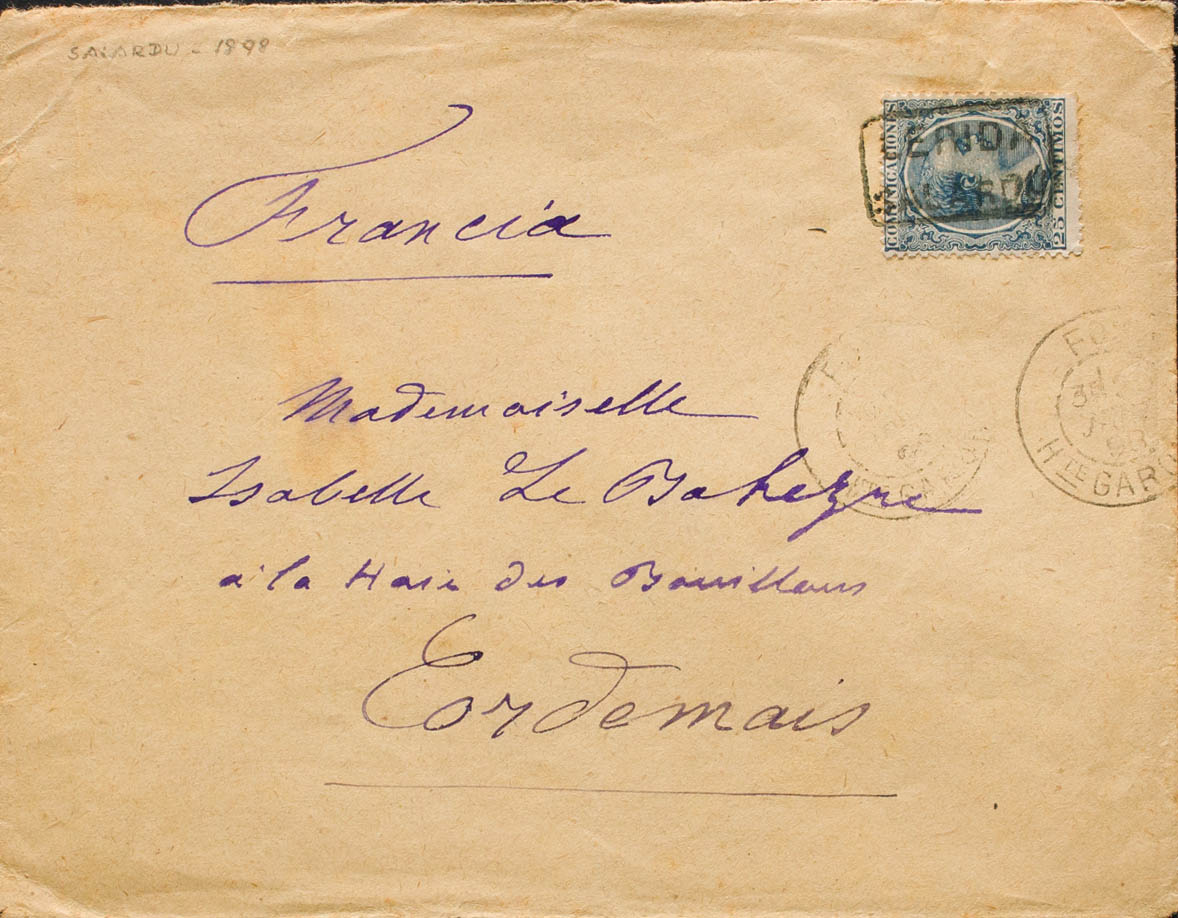 SALARDU - 1898
Francia
COMUNICACIONES
25 CENTIMOS
Mademoiselle
Isabelle Le Bahezre
à la Haie des Bouillons
Cordemais
3E
98
HTE GAR